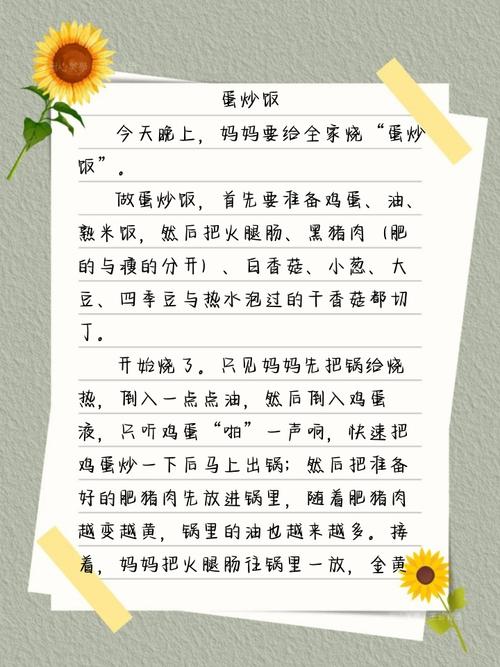 蛋炒饭
今天晚上，妈妈要给全家烧“蛋炒
饭”。
做蛋炒饭，首先要准备鸡蛋、油、
熟米饭，然后把火腿肠、黑猪肉（肥
的与瘦的分开）、白香菇、小葱、大
豆、四季豆与热水泡过的干香菇都切
丁。
开始烧了。只见妈妈先把锅给烧
热，倒入一点点油，然后倒入鸡蛋
液，只听鸡蛋“啪”一声响，快速把
鸡蛋炒一下后马上出锅；然后把准备
好的肥猪肉先放进锅里，随着肥猪肉
越变越黄，锅里的油也越来越多。接
着，妈妈把火腿肠往锅里一放，金黄